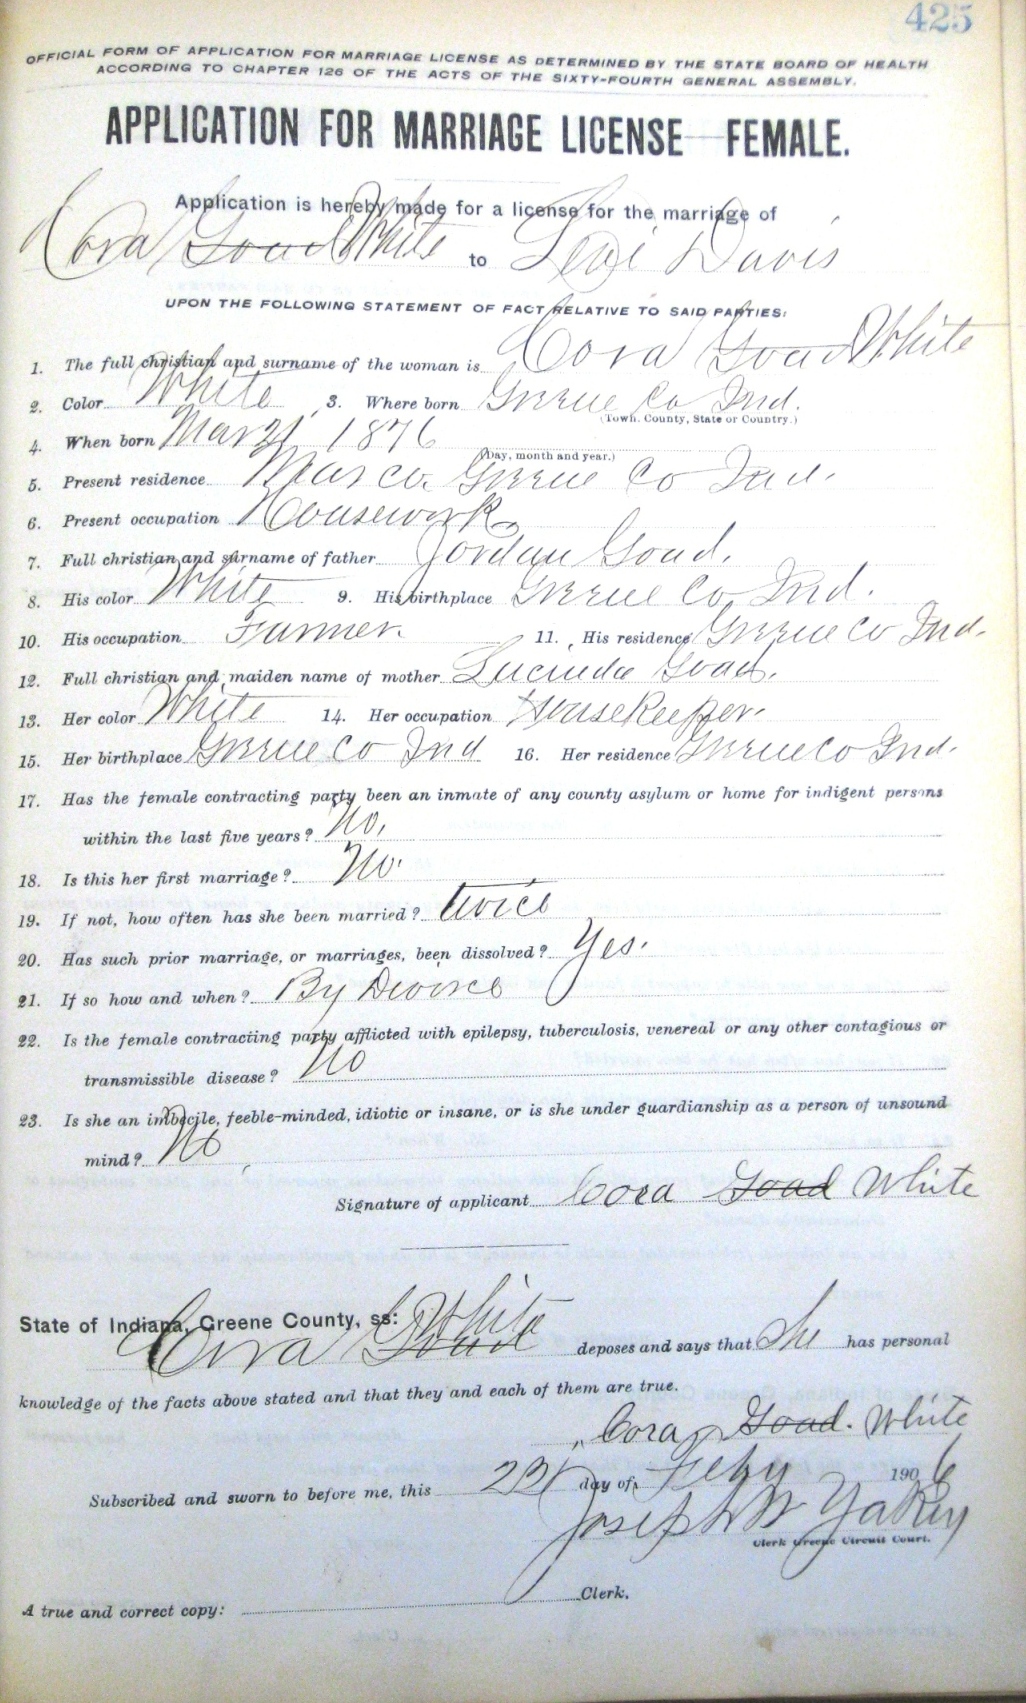 425
OFFICIAL FORM OF APPLICATION FOR MARRIAGE LICENSE AS DETERMINED BY THE STATE BOARD OF HEALTH
ACCORDING TO CHAPTER 126 OF THE ACTS OF THE SIXTY-FOURTH GENERAL ASSEMBLY.
APPLICATION FOR MARRIAGE LICENSE—FEMALE.
Application is hereby made for a license for the marriage of
Cora Goad White to Levi Davis
UPON THE FOLLOWING STATEMENT OF FACT RELATIVE TO SAID PARTIES:
1. The full christian and surname of the woman is Cora Goad White
2. Color White 3. Where born Greene Co Ind.
(Town, County, State or Country.)
4. When born Mar 1876
(Day, month and year.)
5. Present residence Marco. Greene Co Ind.
6. Present occupation Housework
7. Full christian and surname of father Jordan Goad.
8. His color White 9. His birthplace Greene Co Ind.
10. His occupation Farmer. 11. His residence Greene Co Ind.
12. Full christian and maiden name of mother Lucinda Goad.
13. Her color White 14. Her occupation Housekeeper.
15. Her birthplace Greene Co Ind 16. Her residence Greene Co Ind.
17. Has the female contracting party been an inmate of any county asylum or home for indigent persons
within the last five years? No.
18. Is this her first marriage? No.
19. If not, how often has she been married? twice
20. Has such prior marriage, or marriages, been dissolved? Yes.
21. If so how and when? By Divorce
22. Is the female contracting party afflicted with epilepsy, tuberculosis, venereal or any other contagious or
transmissible disease? No
23. Is she an imbecile, feeble-minded, idiotic or insane, or is she under guardianship as a person of unsound
mind? No
Signature of applicant Cora Goad White
State of Indiana, Greene County, ss:
Cora Goad White deposes and says that She has personal
knowledge of the facts above stated and that they and each of them are true.
Cora Goad. White
Subscribed and sworn to before me, this day of Feby 1906
Joseph W Yakey
Clerk Greene Circuit Court.
A true and correct copy: Clerk.